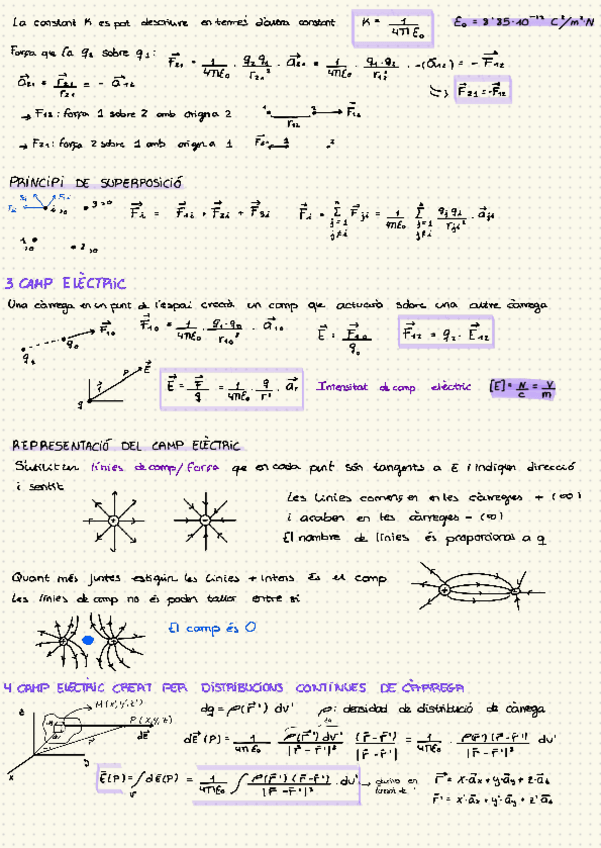 La constant K es pot descriure en termes d'altra constant K = 1/4πε₀ ε₀ = 8'85·10⁻¹² C²/m²N
Força que fa q₂ sobre q₁: F⃗₂₁ = 1/4πε₀ · q₂q₁/r₂₁² · a⃗₂₁ = 1/4πε₀ · q₁·q₂/r₁₂² · -(a⃗₁₂) = -F⃗₁₂
a⃗₂₁ = r⃗₂₁/r₂₁ = -a⃗₁₂
F⃗₂₁ = -F⃗₁₂
→ F₁₂: força 1 sobre 2 amb origen a 2 1 r₁₂ 2 F⃗₁₂
→ F₂₁: força 2 sobre 1 amb origen a 1 F⃗₂₁ 1 2
PRINCIPI DE SUPERPOSICIÓ
F⃗ᵢ = F⃗₁ᵢ + F⃗₂ᵢ + F⃗₃ᵢ F⃗ᵢ = Σ F⃗ⱼᵢ = 1/4πε₀ Σ qⱼqᵢ/rⱼᵢ² · a⃗ⱼᵢ
3 CAMP ELÈCTRIC
Una càrrega en un punt de l'espai crearà un camp que actuarà sobre una altre càrrega
q₁ q₀ F⃗₁₀ F⃗₁₀ = 1/4πε₀ · q₁·q₀/r₁₀² · a⃗₁₀ E⃗ = F⃗₁₀/q₀ F⃗₁₂ = q₂ · E⃗₁₂
q r⃗ P E⃗ E⃗ = F⃗/q = 1/4πε₀ · q/r² · a⃗ᵣ Intensitat de camp elèctric [E] = N/C = V/m
REPRESENTACIÓ DEL CAMP ELÈCTRIC
S'utilitzen línies de camp/força que en cada punt són tangents a E i indiquen direcció
i sentit
Les línies comencen en les càrregues + (∞)
i acaben en les càrregues - (∞)
El nombre de línies és proporcional a q
Quant més juntes estiguin les línies + intens és el camp
Les línies de camp no és poden tallar entre si
El camp és 0
4 CAMP ELÈCTRIC CREAT PER DISTRIBUCIONS CONTÍNUES DE CÀRREGA
z M(x',y',z') P(x,y,z) dE⃗ x y
dq = ρ(r⃗') dv' ρ: densidad de distribució de càrrega
dE⃗(P) = 1/4πε₀ · ρ(r⃗')dv'/|r⃗-r⃗'|² · (r⃗-r⃗')/|r⃗-r⃗'| = 1/4πε₀ · ρ(r⃗')(r⃗-r⃗')/|r⃗-r⃗'|³ dv'
E⃗(P) = ∫ dE(P) = 1/4πε₀ ∫ ρ(r⃗')(r⃗-r⃗')/|r⃗-r⃗'|³ · dv' r⃗ = x·a⃗x + y·a⃗y + z·a⃗z
r⃗' = x'·a⃗x + y'·a⃗y + z'·a⃗z